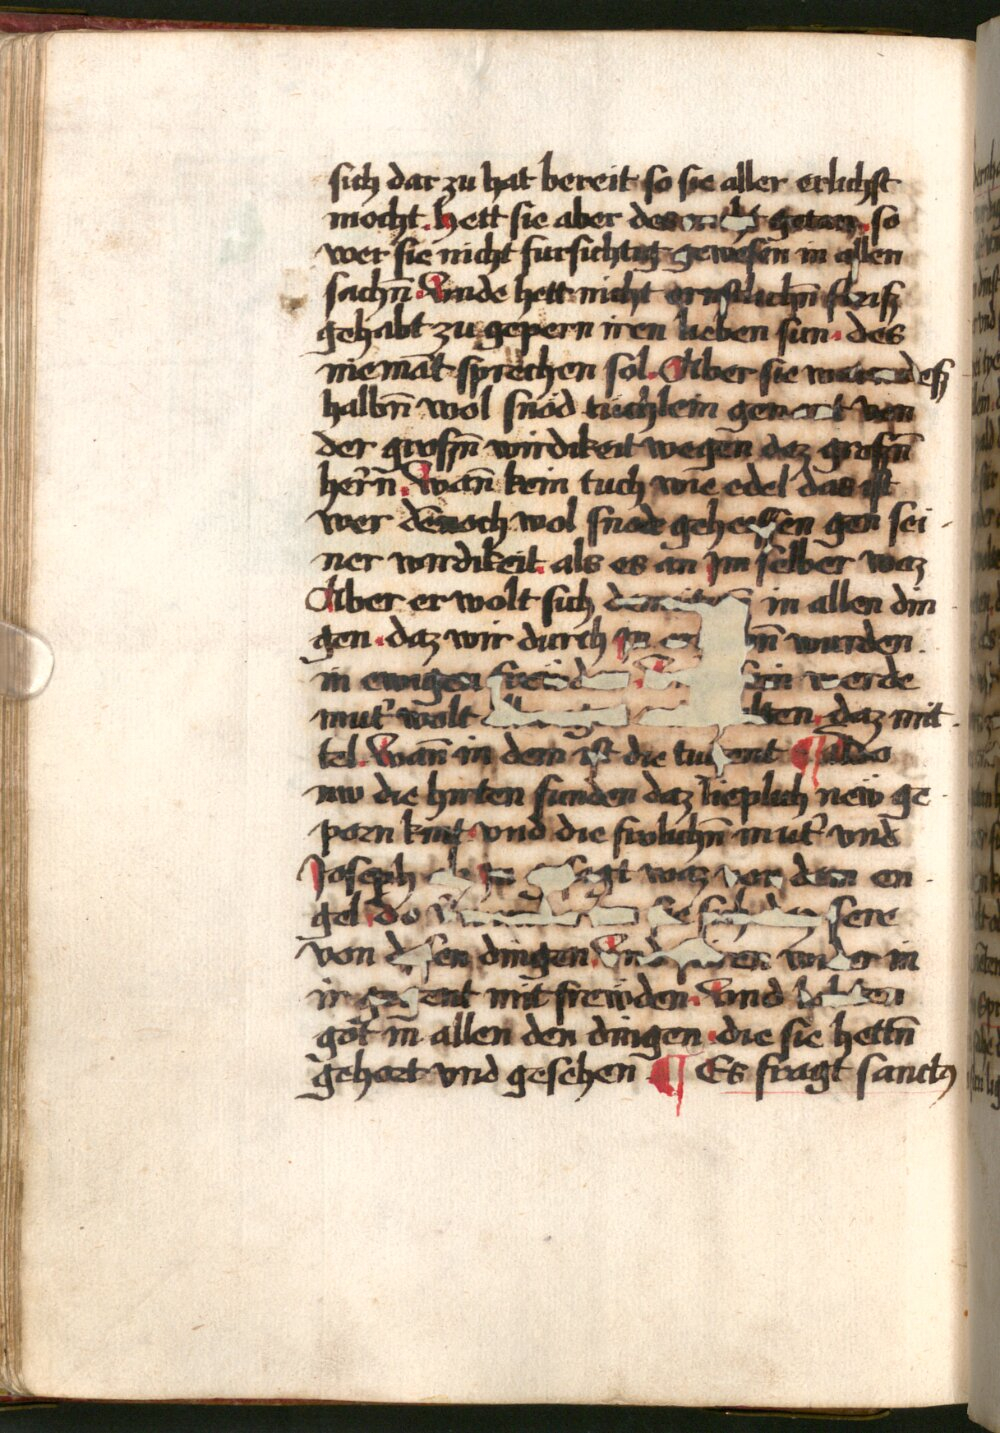 sich dar zu hat bereit so sie aller erlichst
mocht. Hett sie aber des nicht getan. so
wer sie nicht fursichtig gewesen in allen
sachn̄. Vnde hett nicht ernstlichn̄ fleisz
gehabt zu gepern iren lieben sun. des
niemāt sprechen sol. Aber sie desz
halbn̄ wol snöd tüchlein genant von
der grossn̄ wirdikeit wegen daz grossn̄
herrn̄. Wan̄ kein tuch wie edel das ist
wer dēnoch wol snode geheissen gen sei
ner wirdikeit. als es an jm selber waz
Aber er wolt sich in allen din
gen. daz wir durch jn wurden.
in ewigen werde
mut' wolt daz mit
tel. Wan̄ in dem ist die tugent ¶ also
nw die hirten funden daz lieplich new ge
porn kint. vnd die frolichn̄ mut' vnd
Joseph waz von dem en
gel. do sie sich sere
von disen dingen. Vnd wider in
ir gegent mit frewden. Vnd lobten
got in allen den dingen. die sie hettn̄
gehort vnd gesehen ¶ Es fragt sanctꝰ